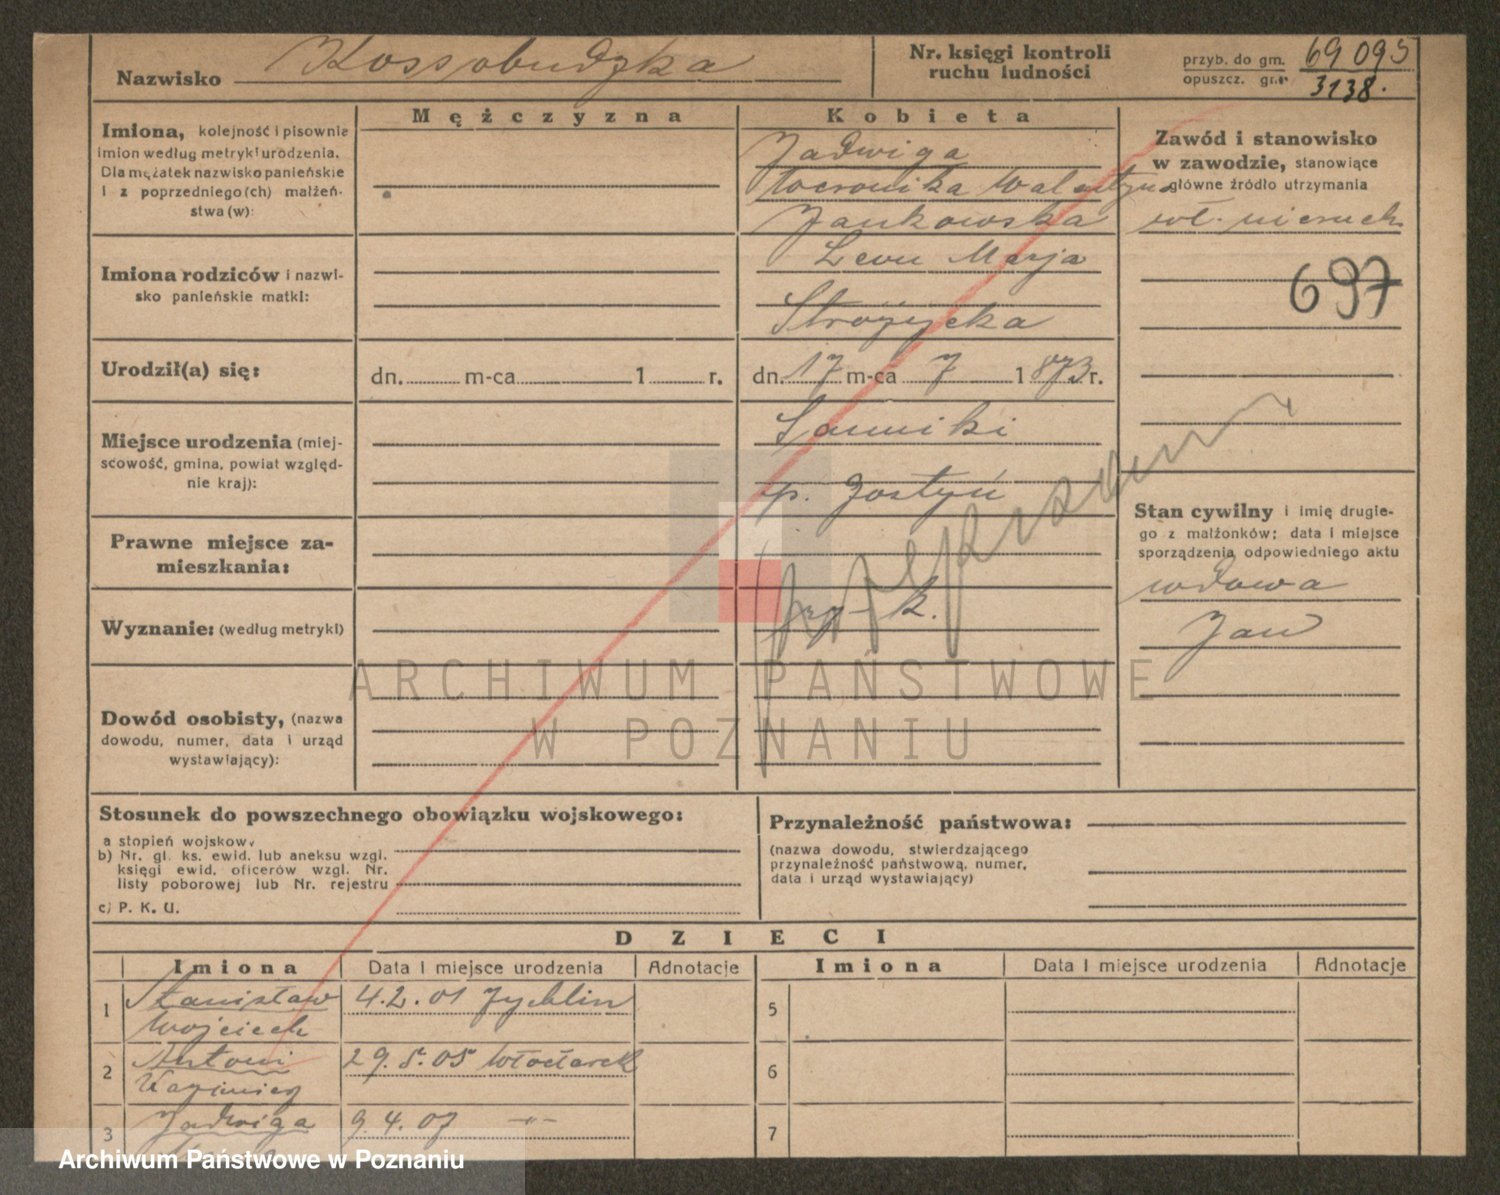 Nazwisko Kossobudzka
Nr. księgi kontroli
ruchu ludności
przyb. do gm. 69 095
opuszcz. gm. 3138.
Mężczyzna
Kobieta
Imiona, kolejność i pisownie
imion według metryki urodzenia.
Dla mężatek nazwisko panieńskie
i z poprzedniego(ch) małżeń-
stwa(w):
Jadwiga
Weronika Walentyna
Jankowska
Zawód i stanowisko
w zawodzie, stanowiące
główne źródło utrzymania
wł. nieruch.
697
Imiona rodziców i nazwi-
sko panieńskie matki:
Leon Marja
Stróżycka
Urodził(a) się:
dn. m-ca 1 r.
dn. 17 m-ca 7 1873 r.
Miejsce urodzenia (miej-
scowość, gmina, powiat względ-
nie kraj):
p. Gostyń
Prawne miejsce za-
mieszkania:
Wyznanie: (według metryki)
rz-k.
Stan cywilny i imię drugie-
go z małżonków; data i miejsce
sporządzenia odpowiedniego aktu
wdowa
Jan
Dowód osobisty, (nazwa
dowodu, numer, data i urząd
wystawiający):
ARCHIWUM PAŃSTWOWE
W POZNANIU
Stosunek do powszechnego obowiązku wojskowego:
a stopień wojskow.
b) Nr. gł. ks. ewid. lub aneksu wzgl.
księgi ewid. oficerów wzgl. Nr.
listy poborowej lub Nr. rejestru
c) P. K. U.
Przynależność państwowa:
(nazwa dowodu, stwierdzającego
przynależność państwową, numer,
data i urząd wystawiający)
DZIECI
Imiona Data i miejsce urodzenia Adnotacje Imiona Data i miejsce urodzenia Adnotacje
1 Stanisław 4.2.01 Żychlin 5
Wojciech
2 Antoni 29.5.05 Włocławek 6
Kazimierz
3 Jadwiga 9.4.07 -"- 7
Archiwum Państwowe w Poznaniu